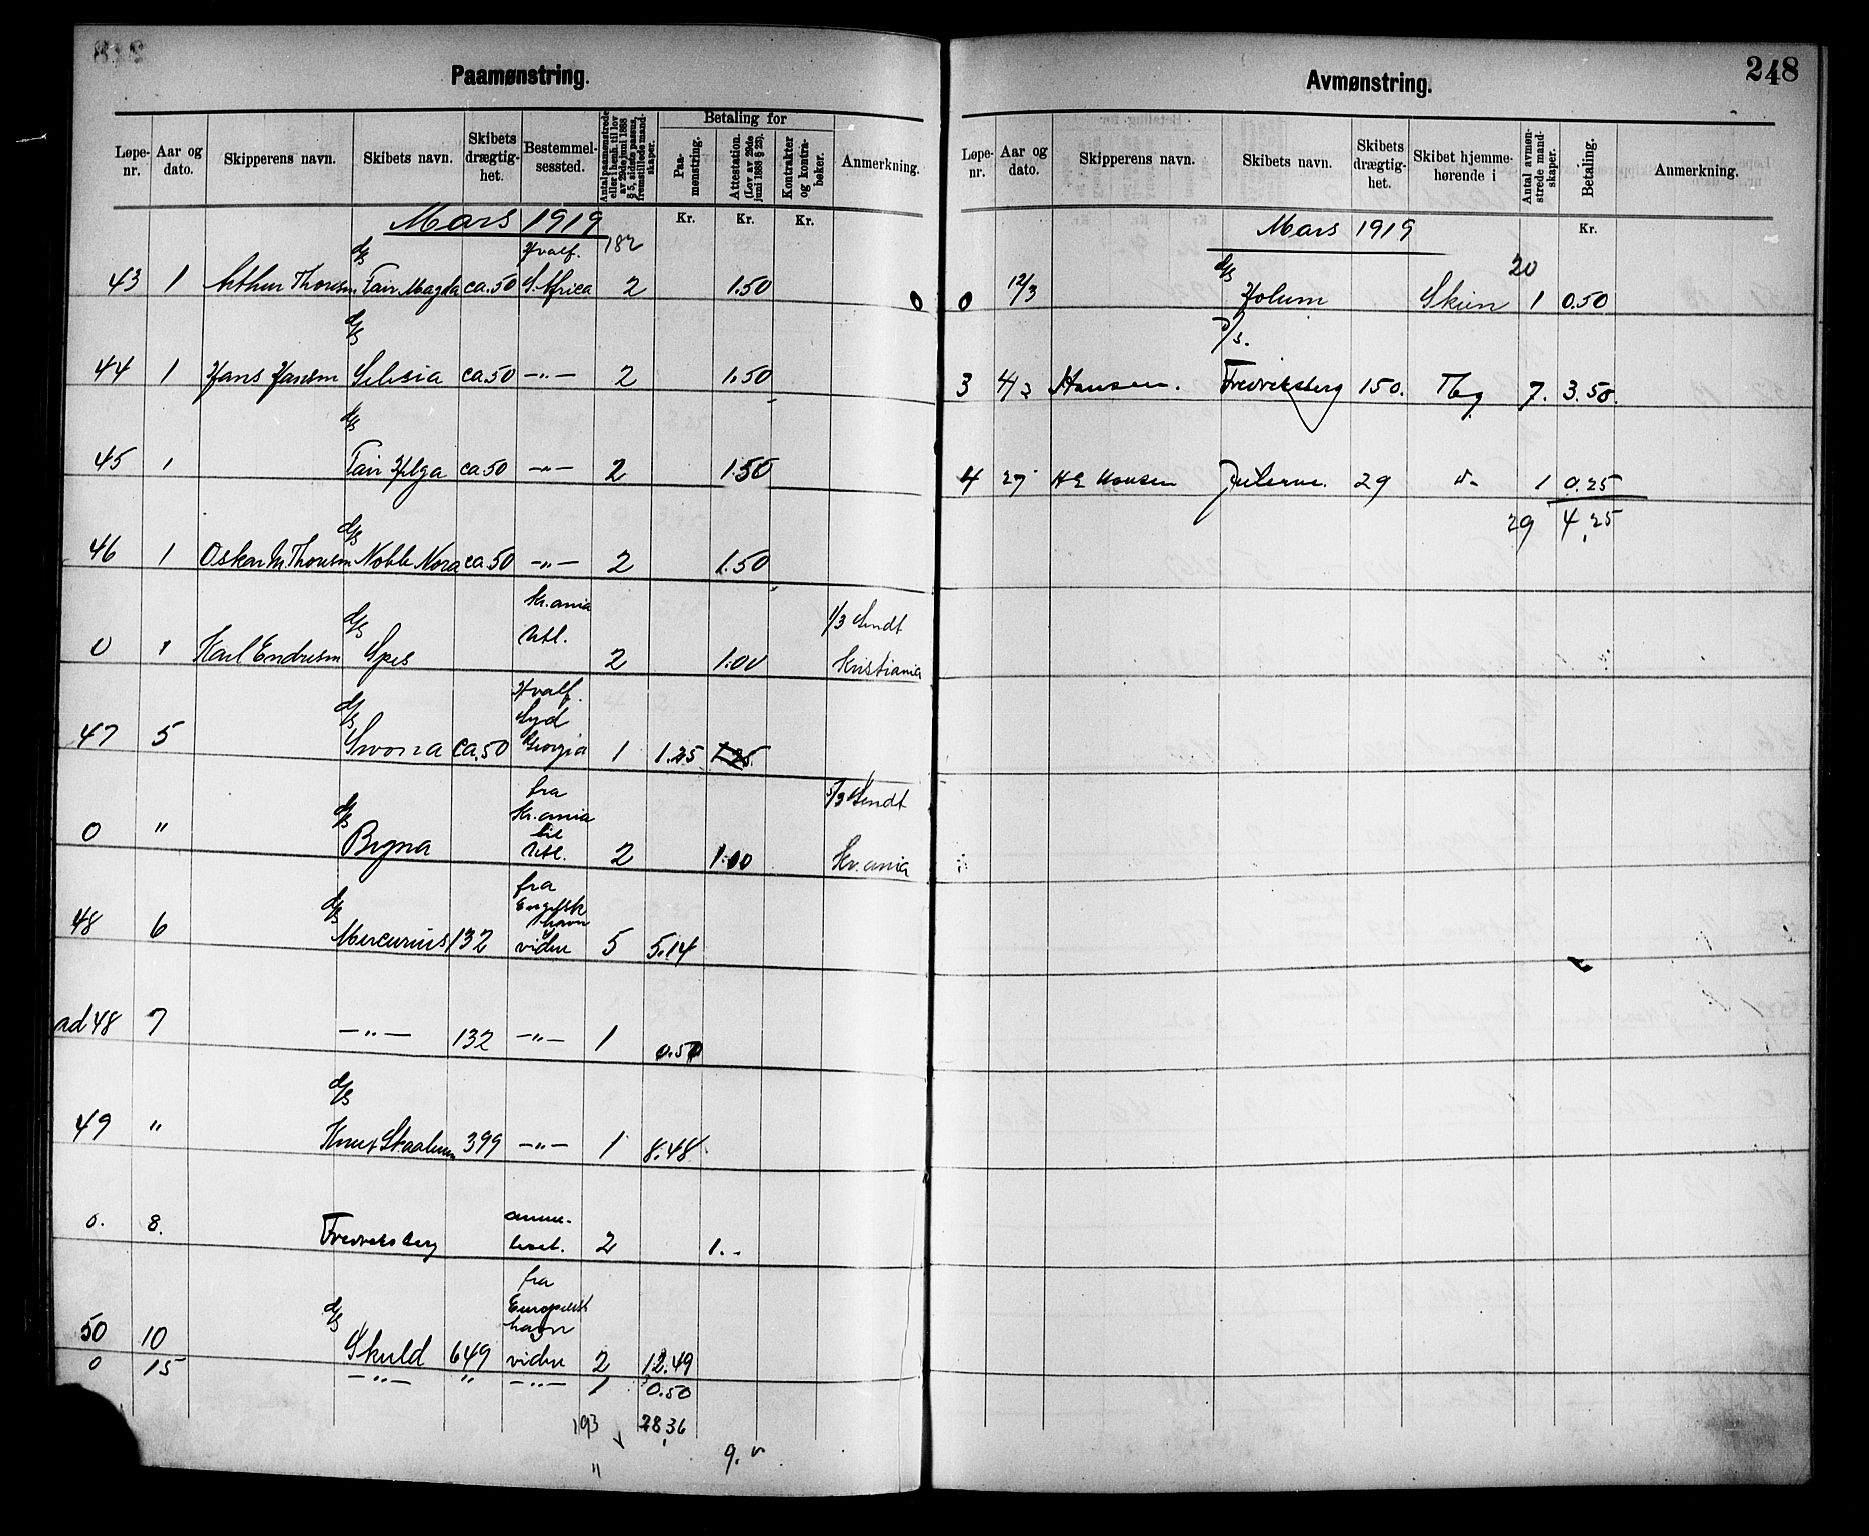 248
Paamønstring.
Løpe-nr. | Aar og dato. | Skipperens navn. | Skibets navn. | Skibets drægtig-het. | Bestemmel-sessted. | Antal paamønstrede eller i henh. til lov av 29de juni 1888 § 5, sidste passus, fremstillede mand-skaper. | Betaling for | Paa-mønstring. | Attestation. (Lov av 29de juni 1888 § 23). | Kontrakter og kontra-bøker. | Anmerkning.
Kr. Kr. Kr.
Mars 1919
182
43 1 Arthur Thoresen d/s Fair Magda ca. 50 Hvalf. S. Africa 2 1.50
44 1 Hans Hansen d/s Silesia ca. 50 -"- 2 1.50
45 1 d/s Fair Helga ca 50 -"- 2 1.50
46 1 Oskar M. Thoresen d/s Noble Nora ca 50 -"- 2 1.50
0 1 Karl Endresen d/s Spes Kr.ania Utl. 2 1.00 1/3 Sendt Kristiania
47 5 d/s Svona ca. 50 Hvalf. Syd Georgia 1 1.25 1.25
0 " d/s Bygna fra Kr.ania til Utl. 2 1.00 5/3 Sendt Kr.ania
48 6 d/s Mercurius 132 fra Engelsk havn videre 5 5.14
ad 48 7 -"- 132 -"- 1 0.50
49 " d/s Knut Skaaluren 399 -"- 1 8.48
0. 8. Fredriksberg 2 1.-
50 10 d/s Skuld 649 fra Europæisk havn videre 2 12.49
0 15 -"- " -"- 1 0.50
193 28,36
"
Avmønstring.
Løpe-nr. | Aar og dato. | Skipperens navn. | Skibets navn. | Skibets drægtig-het. | Skibet hjemme-hørende i | Antal avmøn-strede mand-skaper. | Betaling. | Anmerkning.
Kr.
Mars 1919
20
0 12/3 d/s Holum Skien 1 0.50
3 4/3 Hansen. D/s. Fredriksberg 150. Tbg 7. 3.50.
4 27 H E Hansen 29 d- 1 0.25
29 4,25